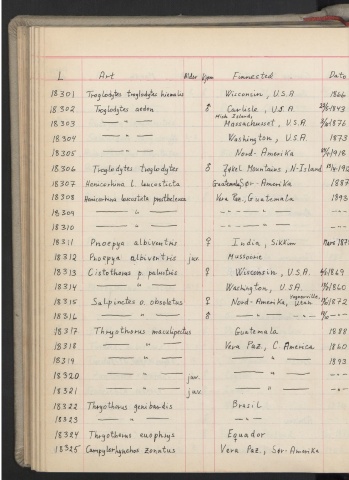 L. Art Alder Kjønn Finnested Date
18301 Troglodytes troglodytes hiemalis Wisconsin, U.S.A 1866
18302 Troglodytes aedon ♂ Carlisle, U.S.A. 1843
18303 — " — " — Massachusset, U.S.A 1876
18304 — " — Washington, U.S.A 1873
18305 — " — Nord-Amerika 1918
18306 Troglodytes troglodytes ♂ Mountains, N-Island
18307 Henicorhina l. leucosticta Guatemala, Sør-Amerika 1887
18308 Henicorhina leucosticta prostheleuca Vera Paz, Guatemala 1893
18309 — " — — " —
18310 — " — — " —
18311 Pnoepya albiventris ♀ India, Sikkim Mars 187
18312 Pnoepya albiventris juv. Mussoorie
18313 Cistothorus p. palustris ♀ Wisconsin, U.S.A. 1869
18314 — " — Washington, U.S.A 1860
18315 Salpinctes o. obsoletus ♀ Nord-Amerika, Utah 1872
18316 — " — ♂ — " —
18317 Thryothorus maculipectus Guatemala 1888
18318 — " — Vera Paz, C. America 1860
18319 — " — — " — 1893
18320 — " — juv. — " —
18321 — " — juv. — " —
18322 Thryothorus genibarbis Brasil
18323 — " — — " —
18324 Thryothorus euophrys Equador
18325 Campylorhynchos zonatus Vera Paz, Sør-Amerika